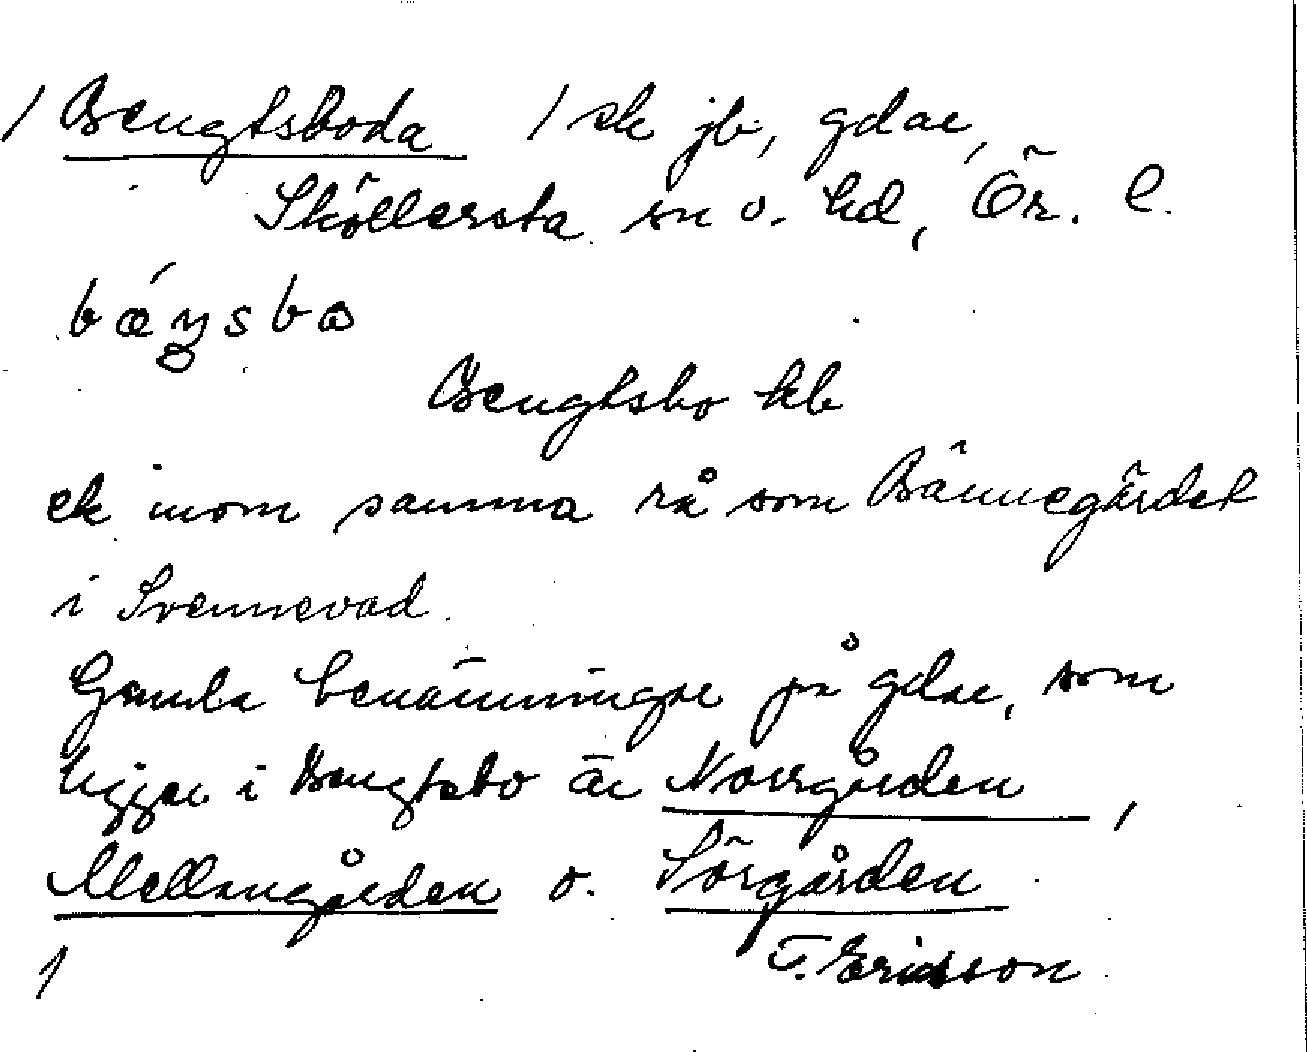 / Bengtsboda / ek jb, gdar,
Sköllersta sn o. hd, Ör. l.
bǽŋsbo
Bengtsbo kb
ek inom samma rå som Bännegärdet
i Svennevad.
Gamla benämningar på gdar, som
ligger i Bengtsbo är Norrgården,
Mellangården o. Sörgården
/ T. Ericsson